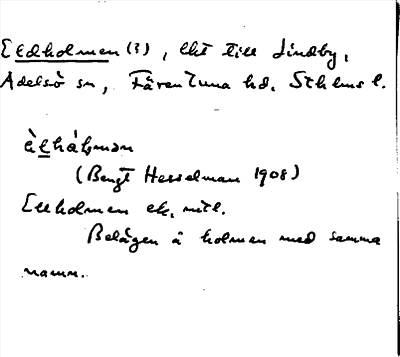 Eldholmen (?), lht till Lindby,
Adelsö sn, Färentuna hd, Sthlms l.
(Bengt Hesselman 1908)
Ekholmen ek.
Belägen å holmen med samma
namn.